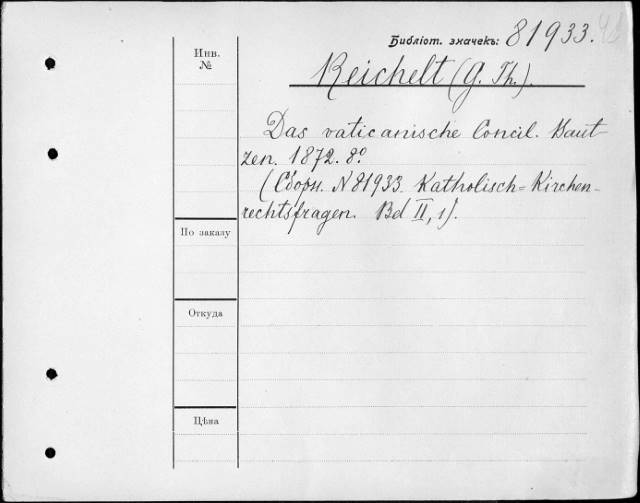 Библіот. значекъ: 81933.
Инв.
№
Reichelt (G. Th.).
Das vaticanische Concil. Baut-
zen. 1872. 8º.
(Сборн. N 81933. Katholisch=Kirchen-
rechtsfragen. Bd II, 1).
По заказу
Откуда
Цѣна